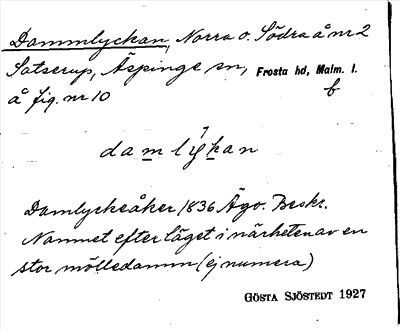 Dammlyckan, Norra o. Södra å nr 2
Satserup, Äspinge sn, Frosta hd, Malm. l.
å fig. nr 10 f
damlykan
Damlyckeåker 1836 Ägo. Beskr.
Namnet efter läget i närheten av en
stor mölledamm (ej numera)
GÖSTA SJÖSTEDT 1927